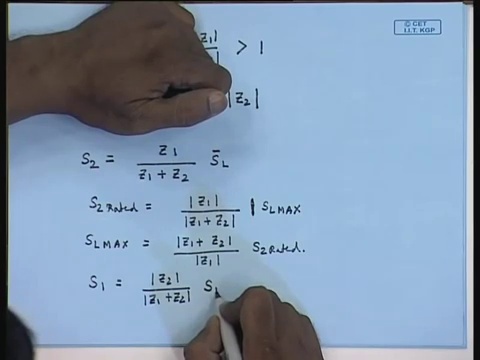 © CET
I.I.T. KGP
|Z1| / | > 1
|Z2|
S2 = Z1 / (Z1 + Z2) S̄L
S2 Rated = |Z1| / |Z1 + Z2| | SLMAX
SLMAX = |Z1 + Z2| / |Z1| S2 Rated.
S1 = |Z2| / |Z1 + Z2| SL